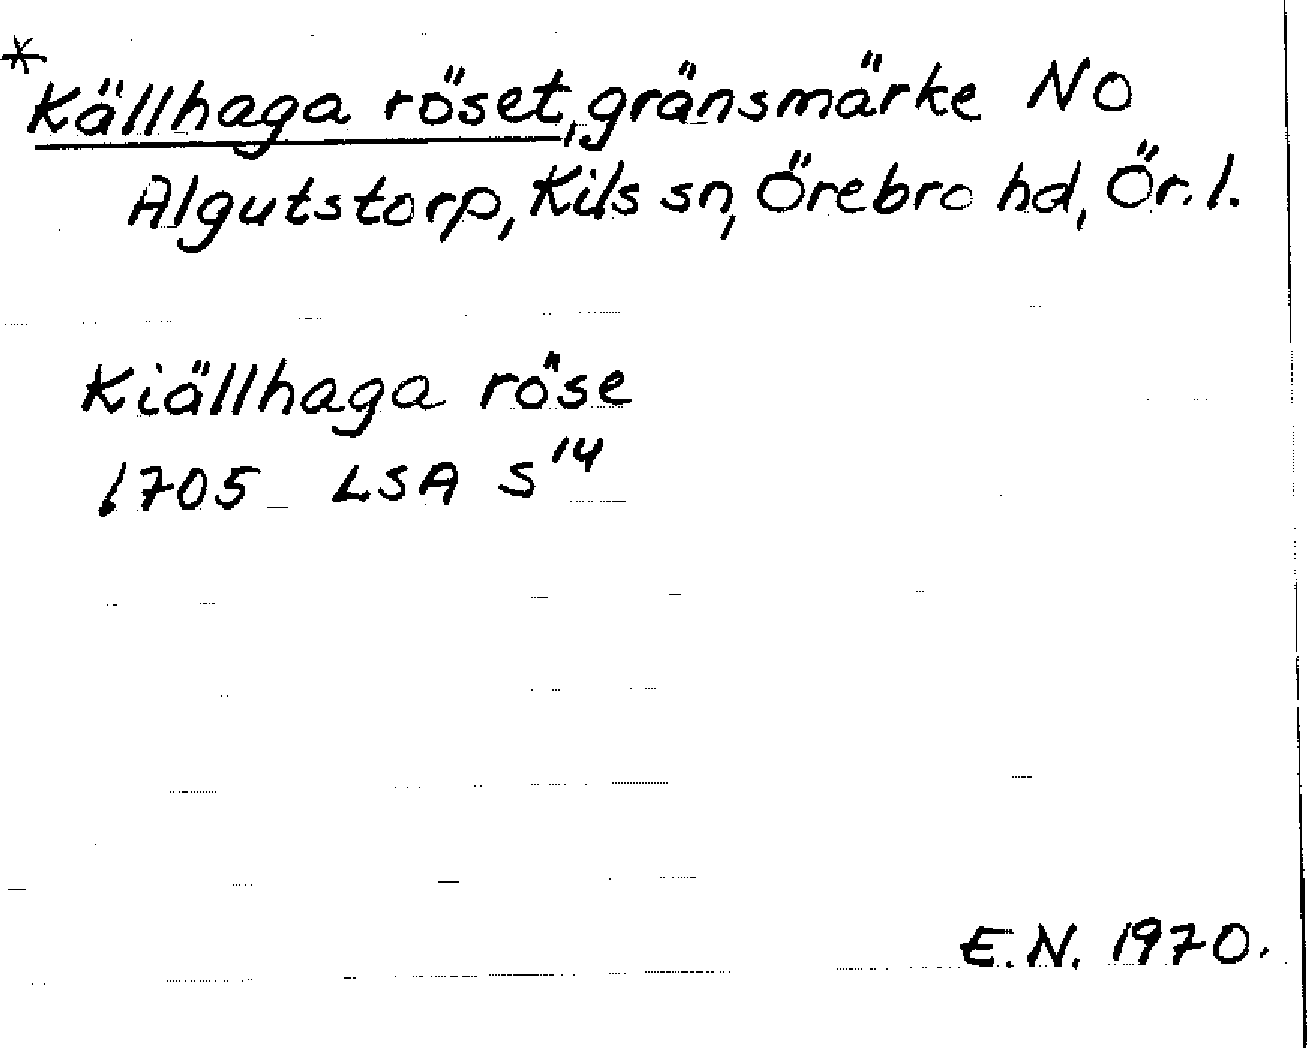 * Källhaga röset, gränsmärke NO
Algutstorp, Kils sn, Örebro hd, Ör. l.
Kiällhaga röse
1705 LSA S 14
E.N. 1970.